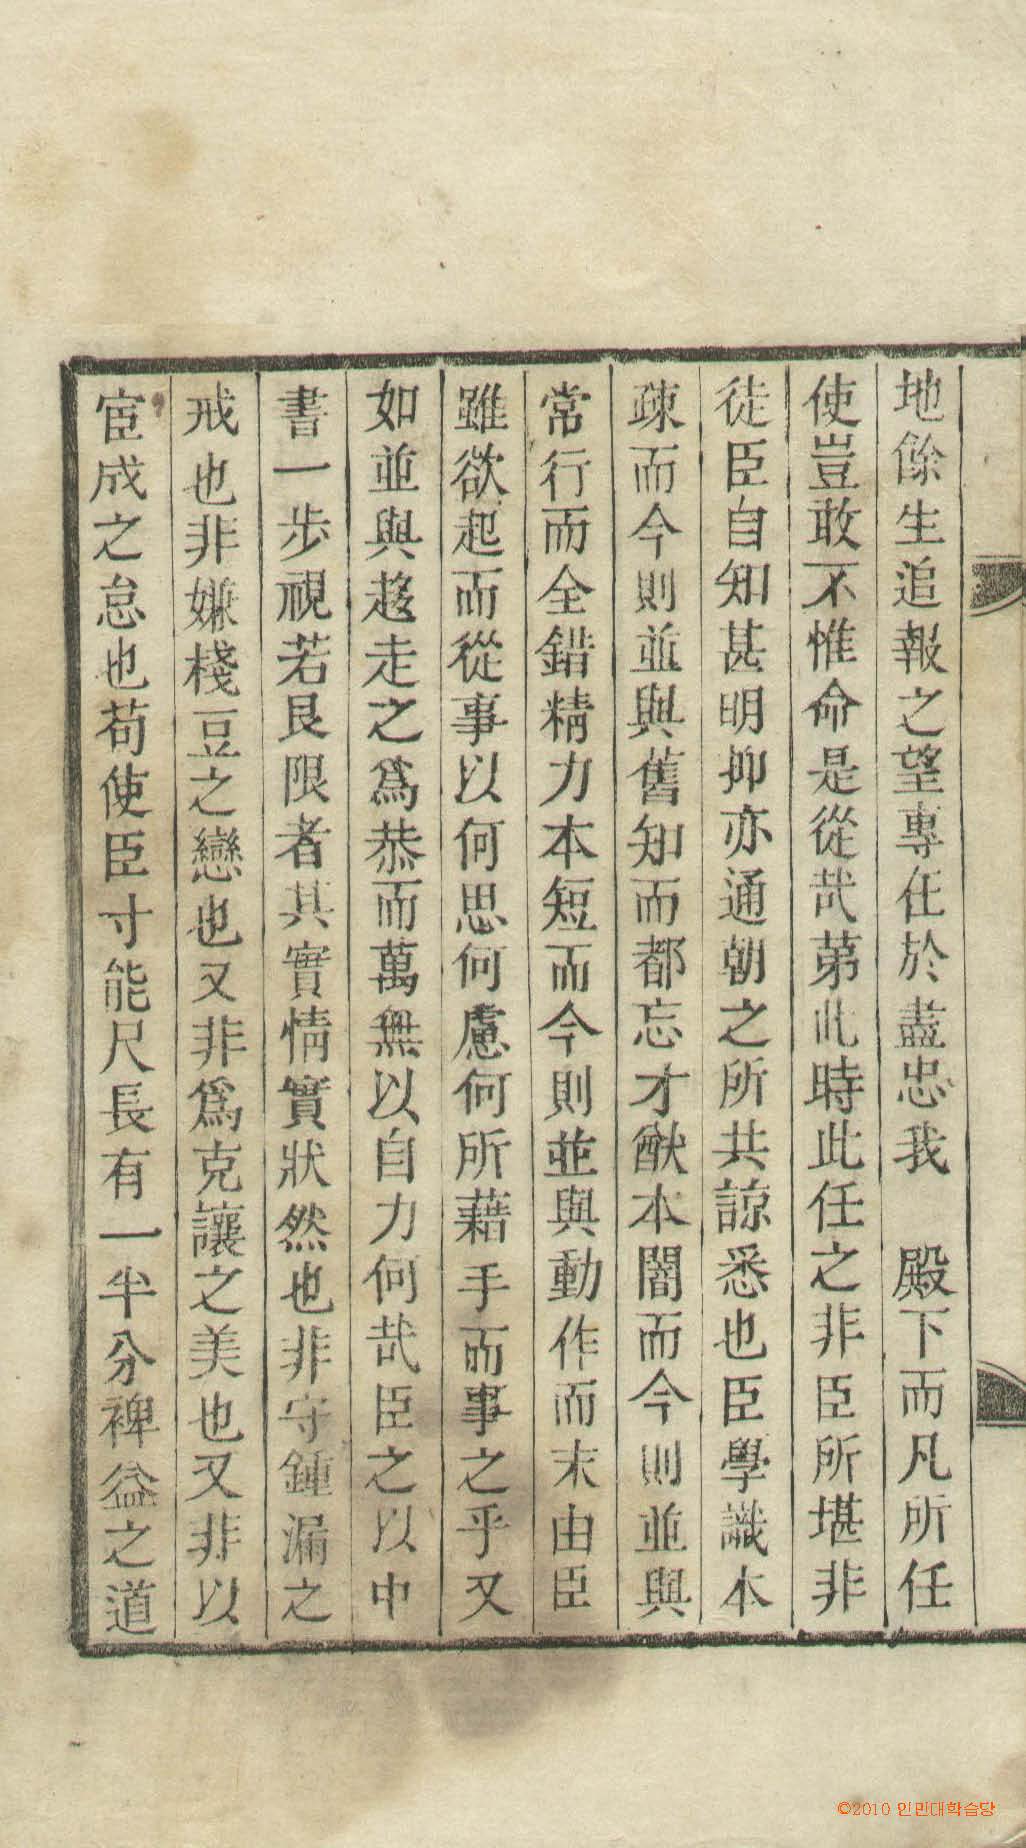 地餘生追報之望專在於盡忠我　殿下而凡所任
使豈敢不惟命是從哉苐此時此任之非臣所堪非
徒臣自知甚明抑亦通朝之所共諒悉也臣學識本
疎而今則並與舊知而都忘才猷本闇而今則並與
常行而全錯精力本短而今則並與動作而末由臣
雖欲起而從事以何思何慮何所藉手而事之乎又
如並與趍走之爲恭而萬無以自力何哉臣之以中
書一步視若艮限者其實情實狀然也非守鍾漏之
戒也非嫌棧豆之戀也又非爲克讓之美也又非以
宦成之怠也苟使臣寸能尺長有一半分裨益之道
©2010 인민대학습당